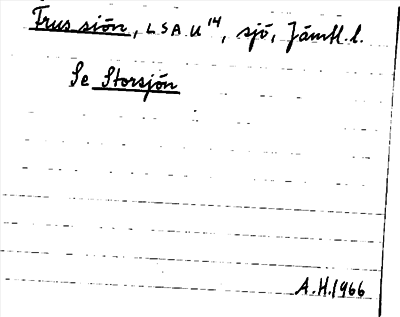 Frus sjön, LSA U 14, sjö, Jämtl. l.
Se Storsjön
A.H. 1966